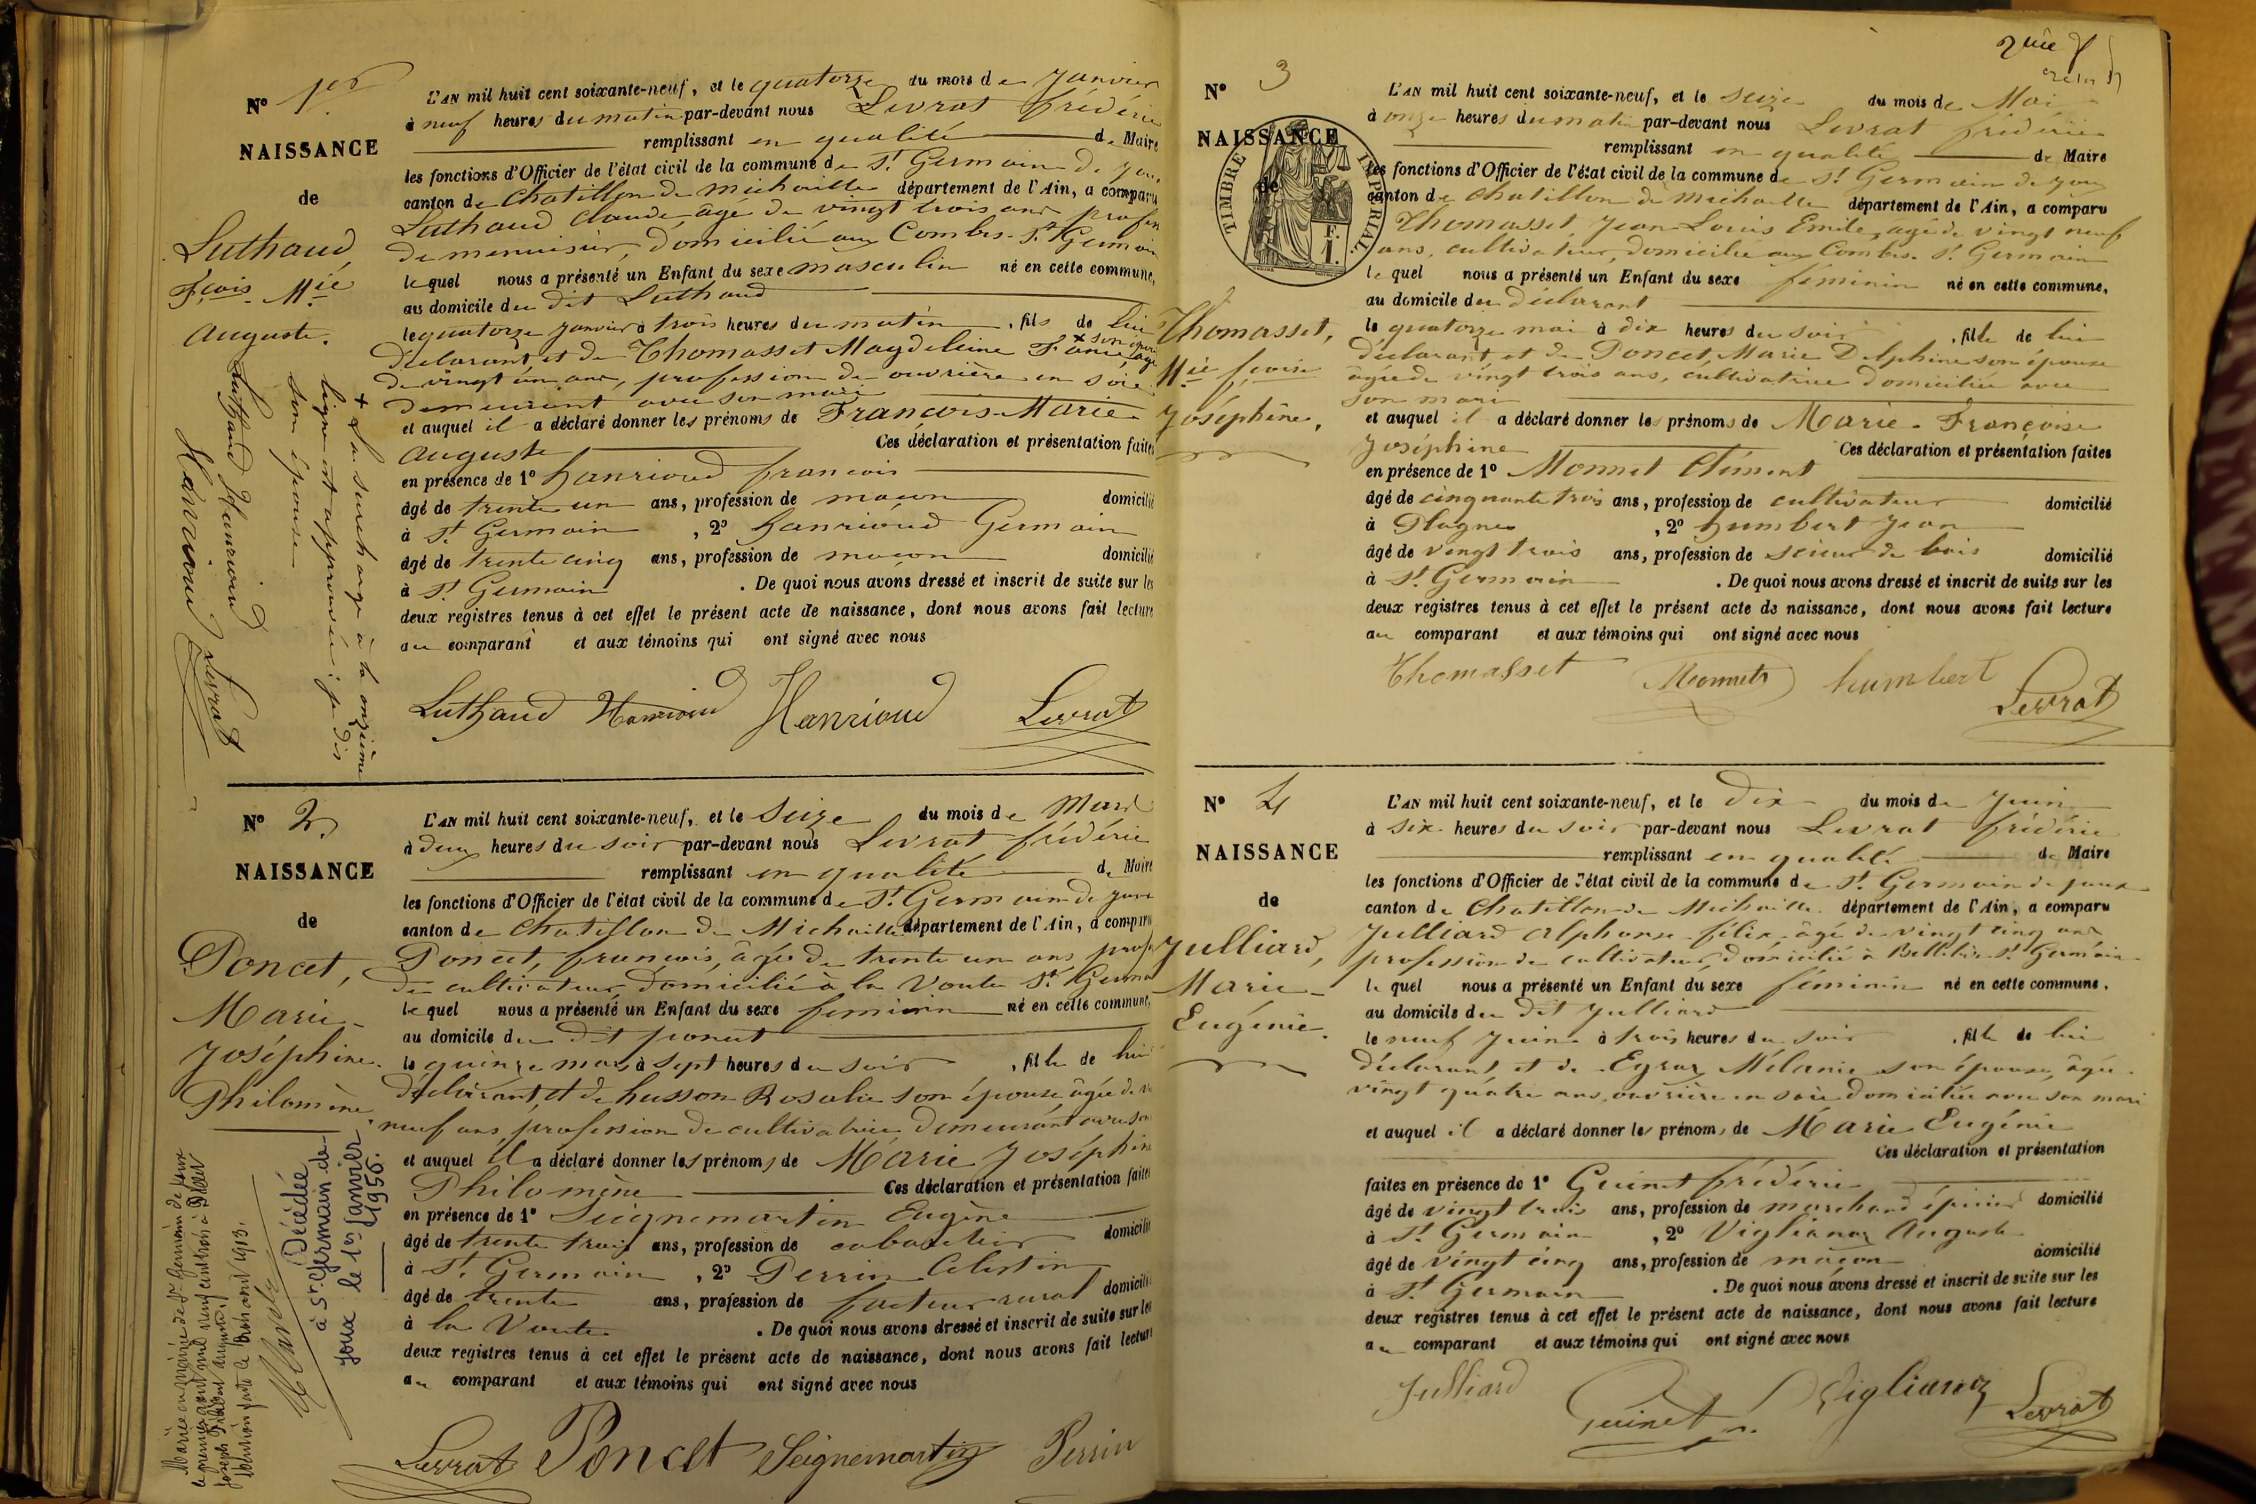 N° 1er
NAISSANCE
de
Luthaud
Fçois Mie
Auguste.
L'AN mil huit cent soixante-neuf, et le quatorze du mois de Janvier
à neuf heures du matin par-devant nous Levrat frédéric
remplissant en qualité de Maire
les fonctions d'Officier de l'état civil de la commune de St Germain de Joux
canton de Chatillon de michaille département de l'Ain, a comparu
Luthaud claude âgé de vingt trois ans profession
de menuisier, domicilié aux Combes. St Germain
lequel nous a présenté un Enfant du sexe masculin né en cette commune,
au domicile du dit Luthaud
le quatorze janvier à trois heures du matin, fils de lui
déclarant et de Thomasset Magdeleine + son épouse âgée
de vingt un ans, profession de ouvrière en soie
demeurant avec son mari
et auquel il a déclaré donner les prénoms de François-Marie
Auguste Ces déclaration et présentation faites
en présence de 1° hanrioud francois
âgé de trente un ans, profession de maçon domicilié
à St Germain, 2° hanrioud Germain
âgé de trente cinq ans, profession de maçon domicilié
à St Germain. De quoi nous avons dressé et inscrit de suite sur les
deux registres tenus à cet effet le présent acte de naissance, dont nous avons fait lecture
au comparant et aux témoins qui ont signé avec nous
Luthaud Hanrioud Hanrioud Levrat
+ La surcharge à la onzième
ligne est approuvée: je dis
son épouse
Luthaud Hanrioud
Hanrioud Levrat
N° 2
NAISSANCE
de
Poncet,
Marie-
Joséphine
Philomène
L'AN mil huit cent soixante-neuf, et le seize du mois de Mars
à deux heures du soir par-devant nous Levrat frédéric
remplissant en qualité de Maire
les fonctions d'Officier de l'état civil de la commune de St Germain de Joux
canton de Chatillon de Michaille département de l'Ain, a comparu
Poncet, francois, âgé de trente un ans profession
de cultivateur, domicilié à la Voute St Germain
lequel nous a présenté un Enfant du sexe feminin né en cette commune,
au domicile du dit poncet
le quinze mars à sept heures du soir, fille de lui
déclarant, et de husson Rosalie son épouse âgée de
neuf ans, profession de cultivatrice demeurant avec son
et auquel il a déclaré donner les prénoms de Marie Joséphine
Philomène Ces déclaration et présentation faites
en présence de 1° Seignemartin Eugène
âgé de trente trois ans, profession de cabaretier domicilié
à St Germain, 2° Perrin Célestin
âgé de trente ans, profession de facteur rural domicilié
à la Voute. De quoi nous avons dressé et inscrit de suite sur les
deux registres tenus à cet effet le présent acte de naissance, dont nous avons fait lecture
au comparant et aux témoins qui ont signé avec nous
Levrat Poncet Seignemartin Perrin
Mariée en mairie de St Germain de Joux
le premier avril mil neuf cent treize à
Joseph
Mention faite le trois avril 1913.
Décédée
à St Germain de
Joux le 1er Janvier
1956.
N° 3
NAISSANCE
de
TIMBRE IMPÉRIAL.
1 F.
Thomasset,
Mie fçoise
Joséphine,
L'AN mil huit cent soixante-neuf, et le seize du mois de Mai
à onze heures du matin par-devant nous Levrat frédéric
remplissant en qualité de Maire
les fonctions d'Officier de l'état civil de la commune de St Germain de Joux
canton de Chatillon de Michaille département de l'Ain, a comparu
Thomasset, Jean-Louis Emile, âgé de vingt neuf
ans, cultivateur, domicilié aux Combes. St Germain
lequel nous a présenté un Enfant du sexe féminin né en cette commune,
au domicile du déclarant
le quatorze mai à dix heures du soir, fille de lui
déclarant, et de Poncet, Marie Delphine son épouse
âgée de vingt trois ans, cultivatrice domiciliée avec
son mari
et auquel il a déclaré donner les prénoms de Marie-Françoise
Joséphine Ces déclaration et présentation faites
en présence de 1° Monnet Clément
âgé de cinquante trois ans, profession de cultivateur domicilié
à Plagnes, 2° humbert Jean
âgé de vingt trois ans, profession de scieur de bois domicilié
à St Germain. De quoi nous avons dressé et inscrit de suite sur les
deux registres tenus à cet effet le présent acte de naissance, dont nous avons fait lecture
au comparant et aux témoins qui ont signé avec nous
Thomasset Monnet humbert Levrat
N° 4
NAISSANCE
de
Julliard,
Marie-
Eugénie.
L'AN mil huit cent soixante-neuf, et le dix du mois de Juin
à six heures du soir par-devant nous Levrat frédéric
remplissant en qualité de Maire
les fonctions d'Officier de l'état civil de la commune de St Germain de joux
canton de Chatillon de Michaille département de l'Ain, a comparu
Julliard Alphonse félix âgé de vingt cinq ans
profession de cultivateur, domicilié à St Germain
lequel nous a présenté un Enfant du sexe féminin né en cette commune,
au domicile du dit Julliard
le neuf Juin à trois heures du soir, fille de lui
déclarant et de Mélanie son épouse, âgée
vingt quatre ans, ouvrière en soie domiciliée avec son mari
et auquel il a déclaré donner les prénoms de Marie Eugénie
Ces déclaration et présentation
faites en présence de 1° Guinet frédéric
âgé de vingt trois ans, profession de marchand épicier domicilié
à St Germain, 2° Viglianoz Auguste
âgé de vingt cinq ans, profession de maçon domicilié
à St Germain. De quoi nous avons dressé et inscrit de suite sur les
deux registres tenus à cet effet le présent acte de naissance, dont nous avons fait lecture
au comparant et aux témoins qui ont signé avec nous
Julliard Guinet Viglianoz Levrat